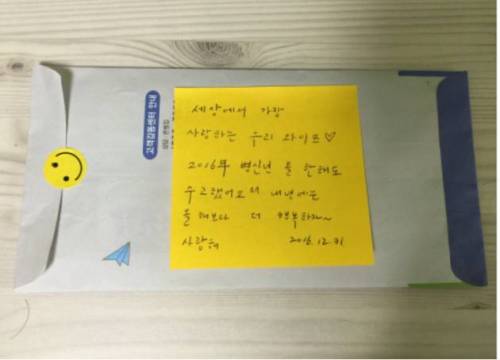 세상에서 가장
사랑하는 우리 와이프♡
2016年 병신년 올 한해도
수고했어요 내년에는
올해보다 더 행복하자~
사랑해 2016.12.31
고객감동센터 안내